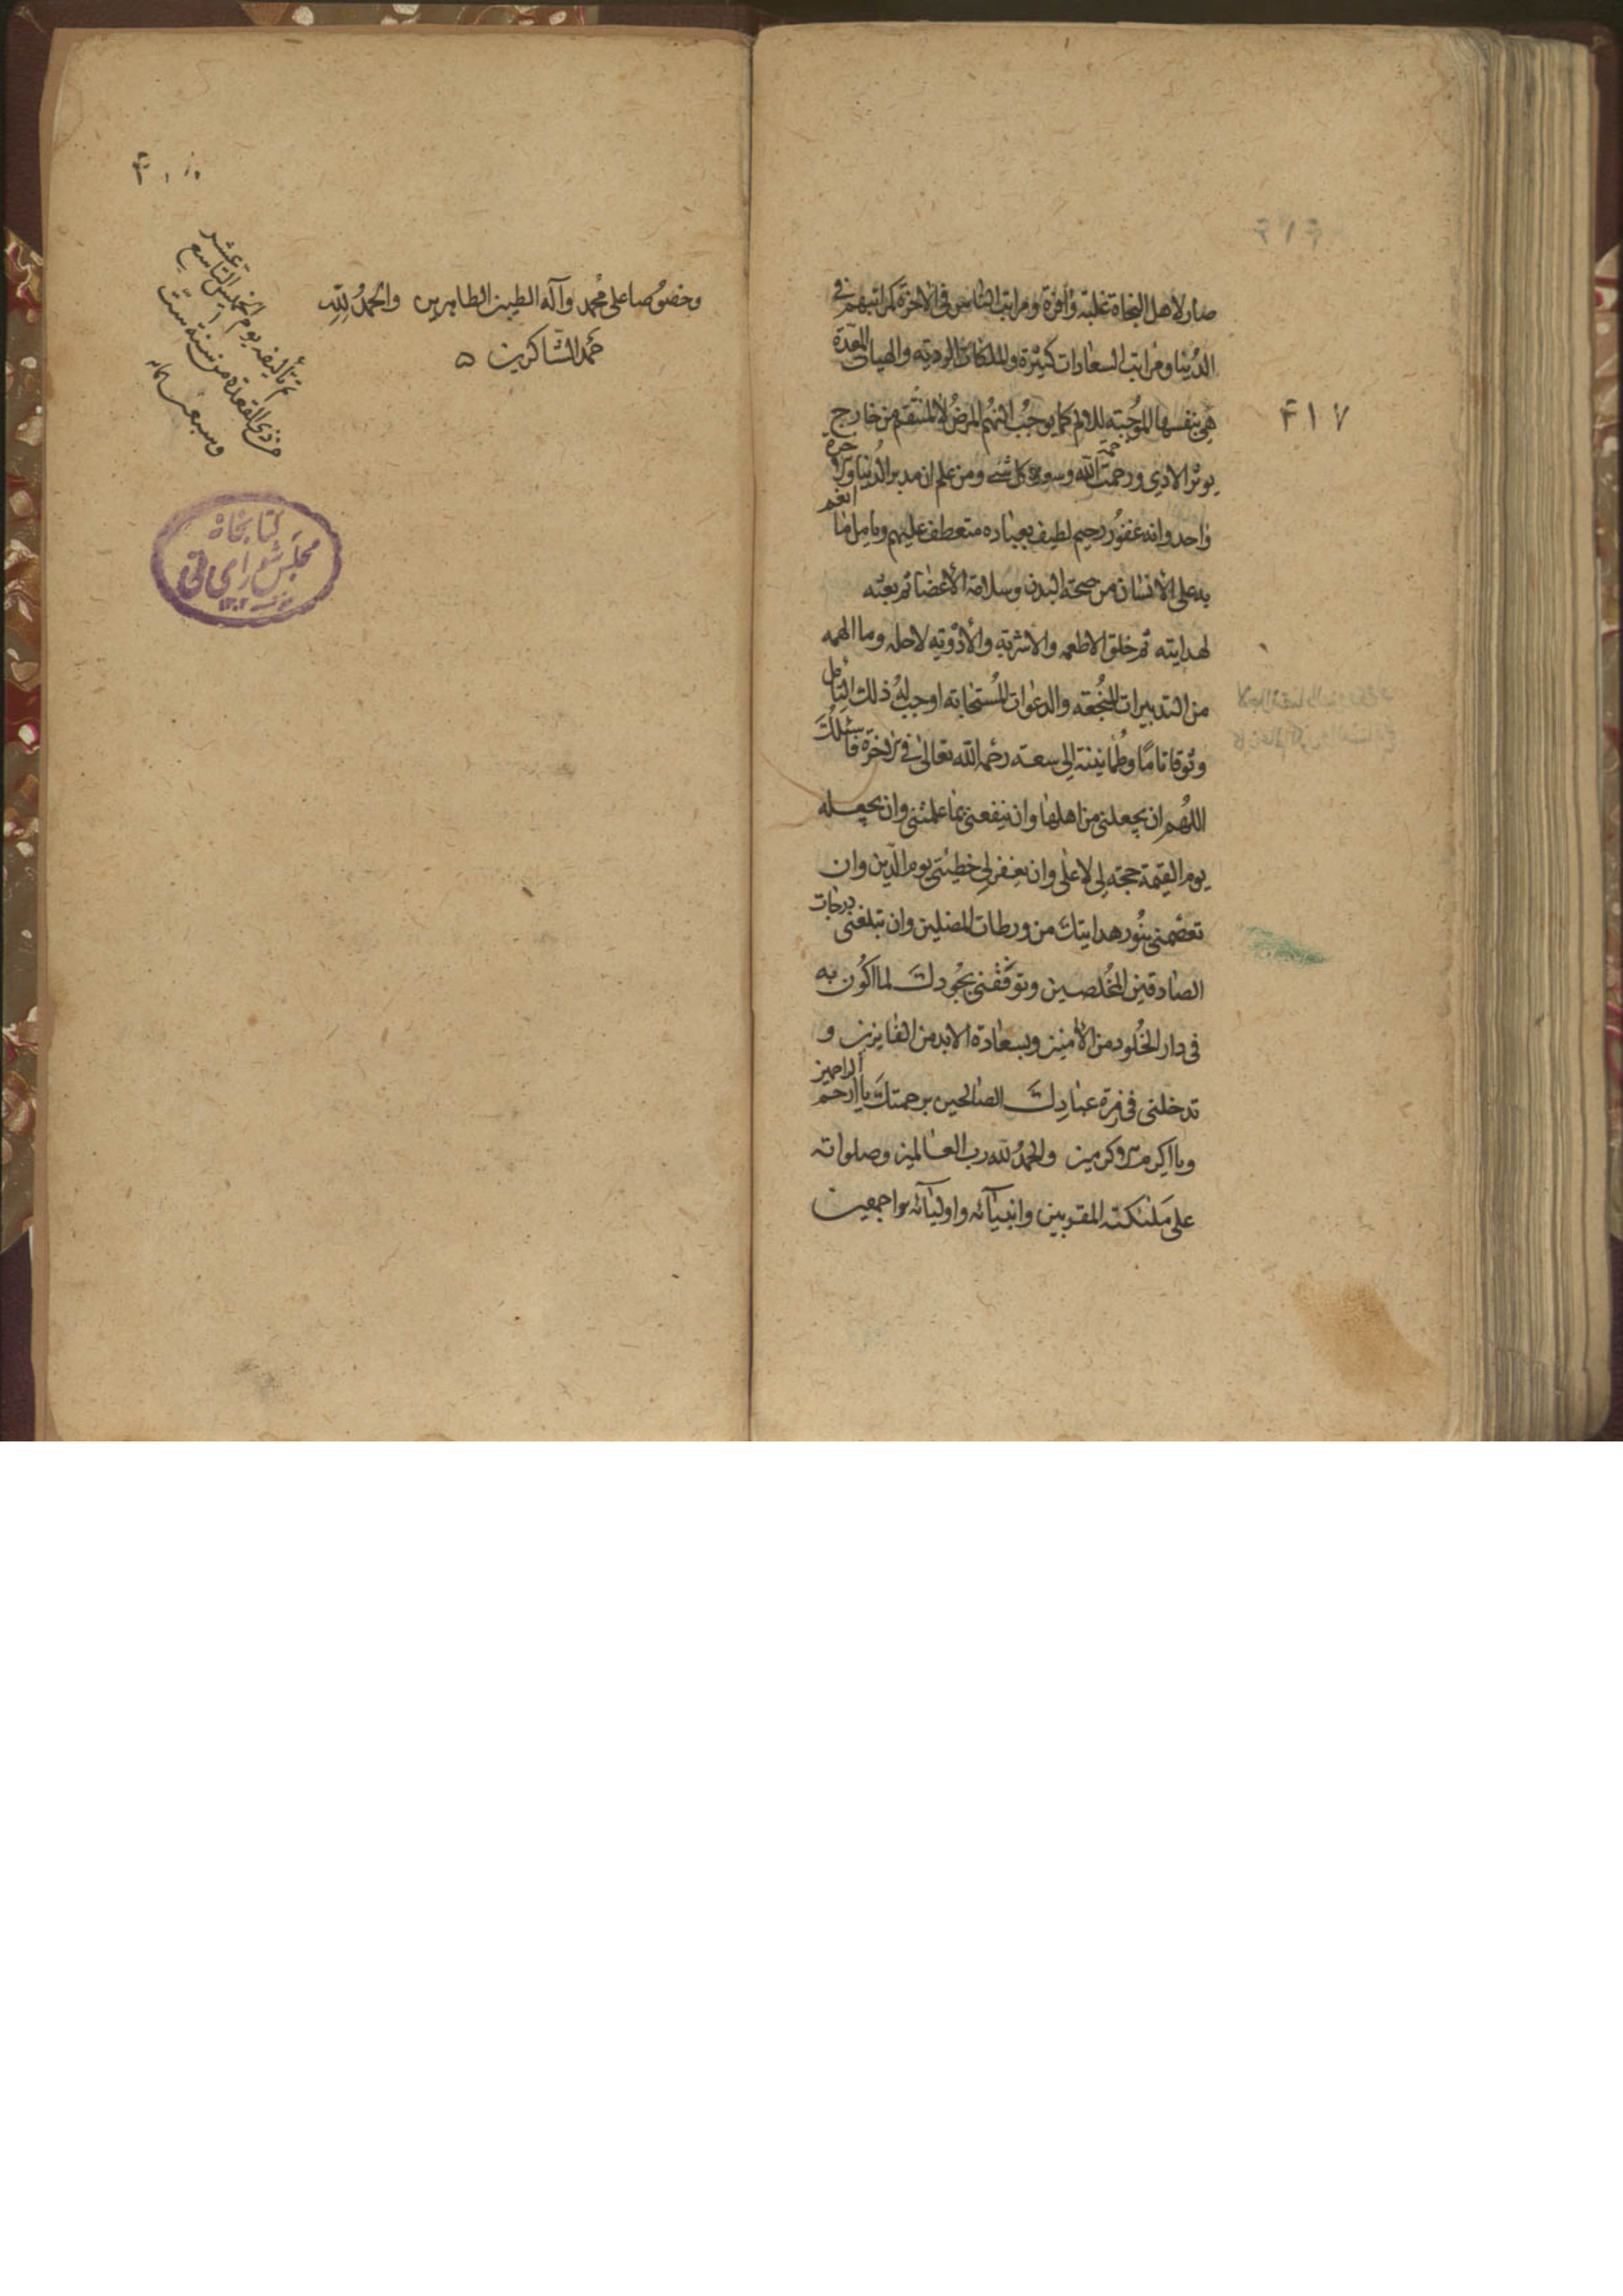 صار لاهل النجاة غلبة وافرة ومراتب الناس فى الاخرة كمراتبهم فى
الدنيا ومراتب السعادات كثيرة والملكات الردية والهيات المعدة
هى بنفسها الموجبة للالم كما يوجب النهم المرض لا لمنتقم من خارج
يوثر الاذى ورحمت الله وسعت كل شئ ومن علم ان مدبر الدنيا والاخرة
واحد وانه غفور رحيم لطيف بعباده متعطف عليهم وتامل ما انعم
به على الانسان من صحة البدن وسلامة الاعضا ثم بعثه
لهدايته ثم خلق الاطعمه والاشربة والادوية لاجله وما الهمه
من التدبيرات المنجعة والدعوات المستجابة اوجب له ذلك التامل
وثوقا تاما وطمانينة الى سعة رحمه الله تعالى فى الاخرة فاسئلك
اللهم ان يجعلنى من اهلها وان ينفعنى بما علمتنى وان يجعله
يوم القيمة حجة لى لا على وان يغفر لى خطيئتى يوم الدين وان
تعصمنى بنور هدايتك من ورطات المضلين وان تبلغنى درجات
الصادقين المخلصين وتوفقنى بجودك لما اكون به
فى دار الخلود من الامنين وبسعادة الابد من الفايزين و
تدخلنى فى زمرة عبادك الصالحين برحمتك يا ارحم الراحمين
ويا اكرم الاكرمين والحمد لله رب العالمين وصلواته
على ملئكته المقربين وانبيآئه واوليآئه اجمعين
٤١٧
وخصوصا على محمد وآله الطيبين الطاهرين والحمد لله
حمد الشاكرين ه
تم تأليفه يوم الخميس التاسع عشر
من ذى القعدة من سنة ست
وسبعين
كتابخانه
مجلس شوراى ملى
١٣٠٢